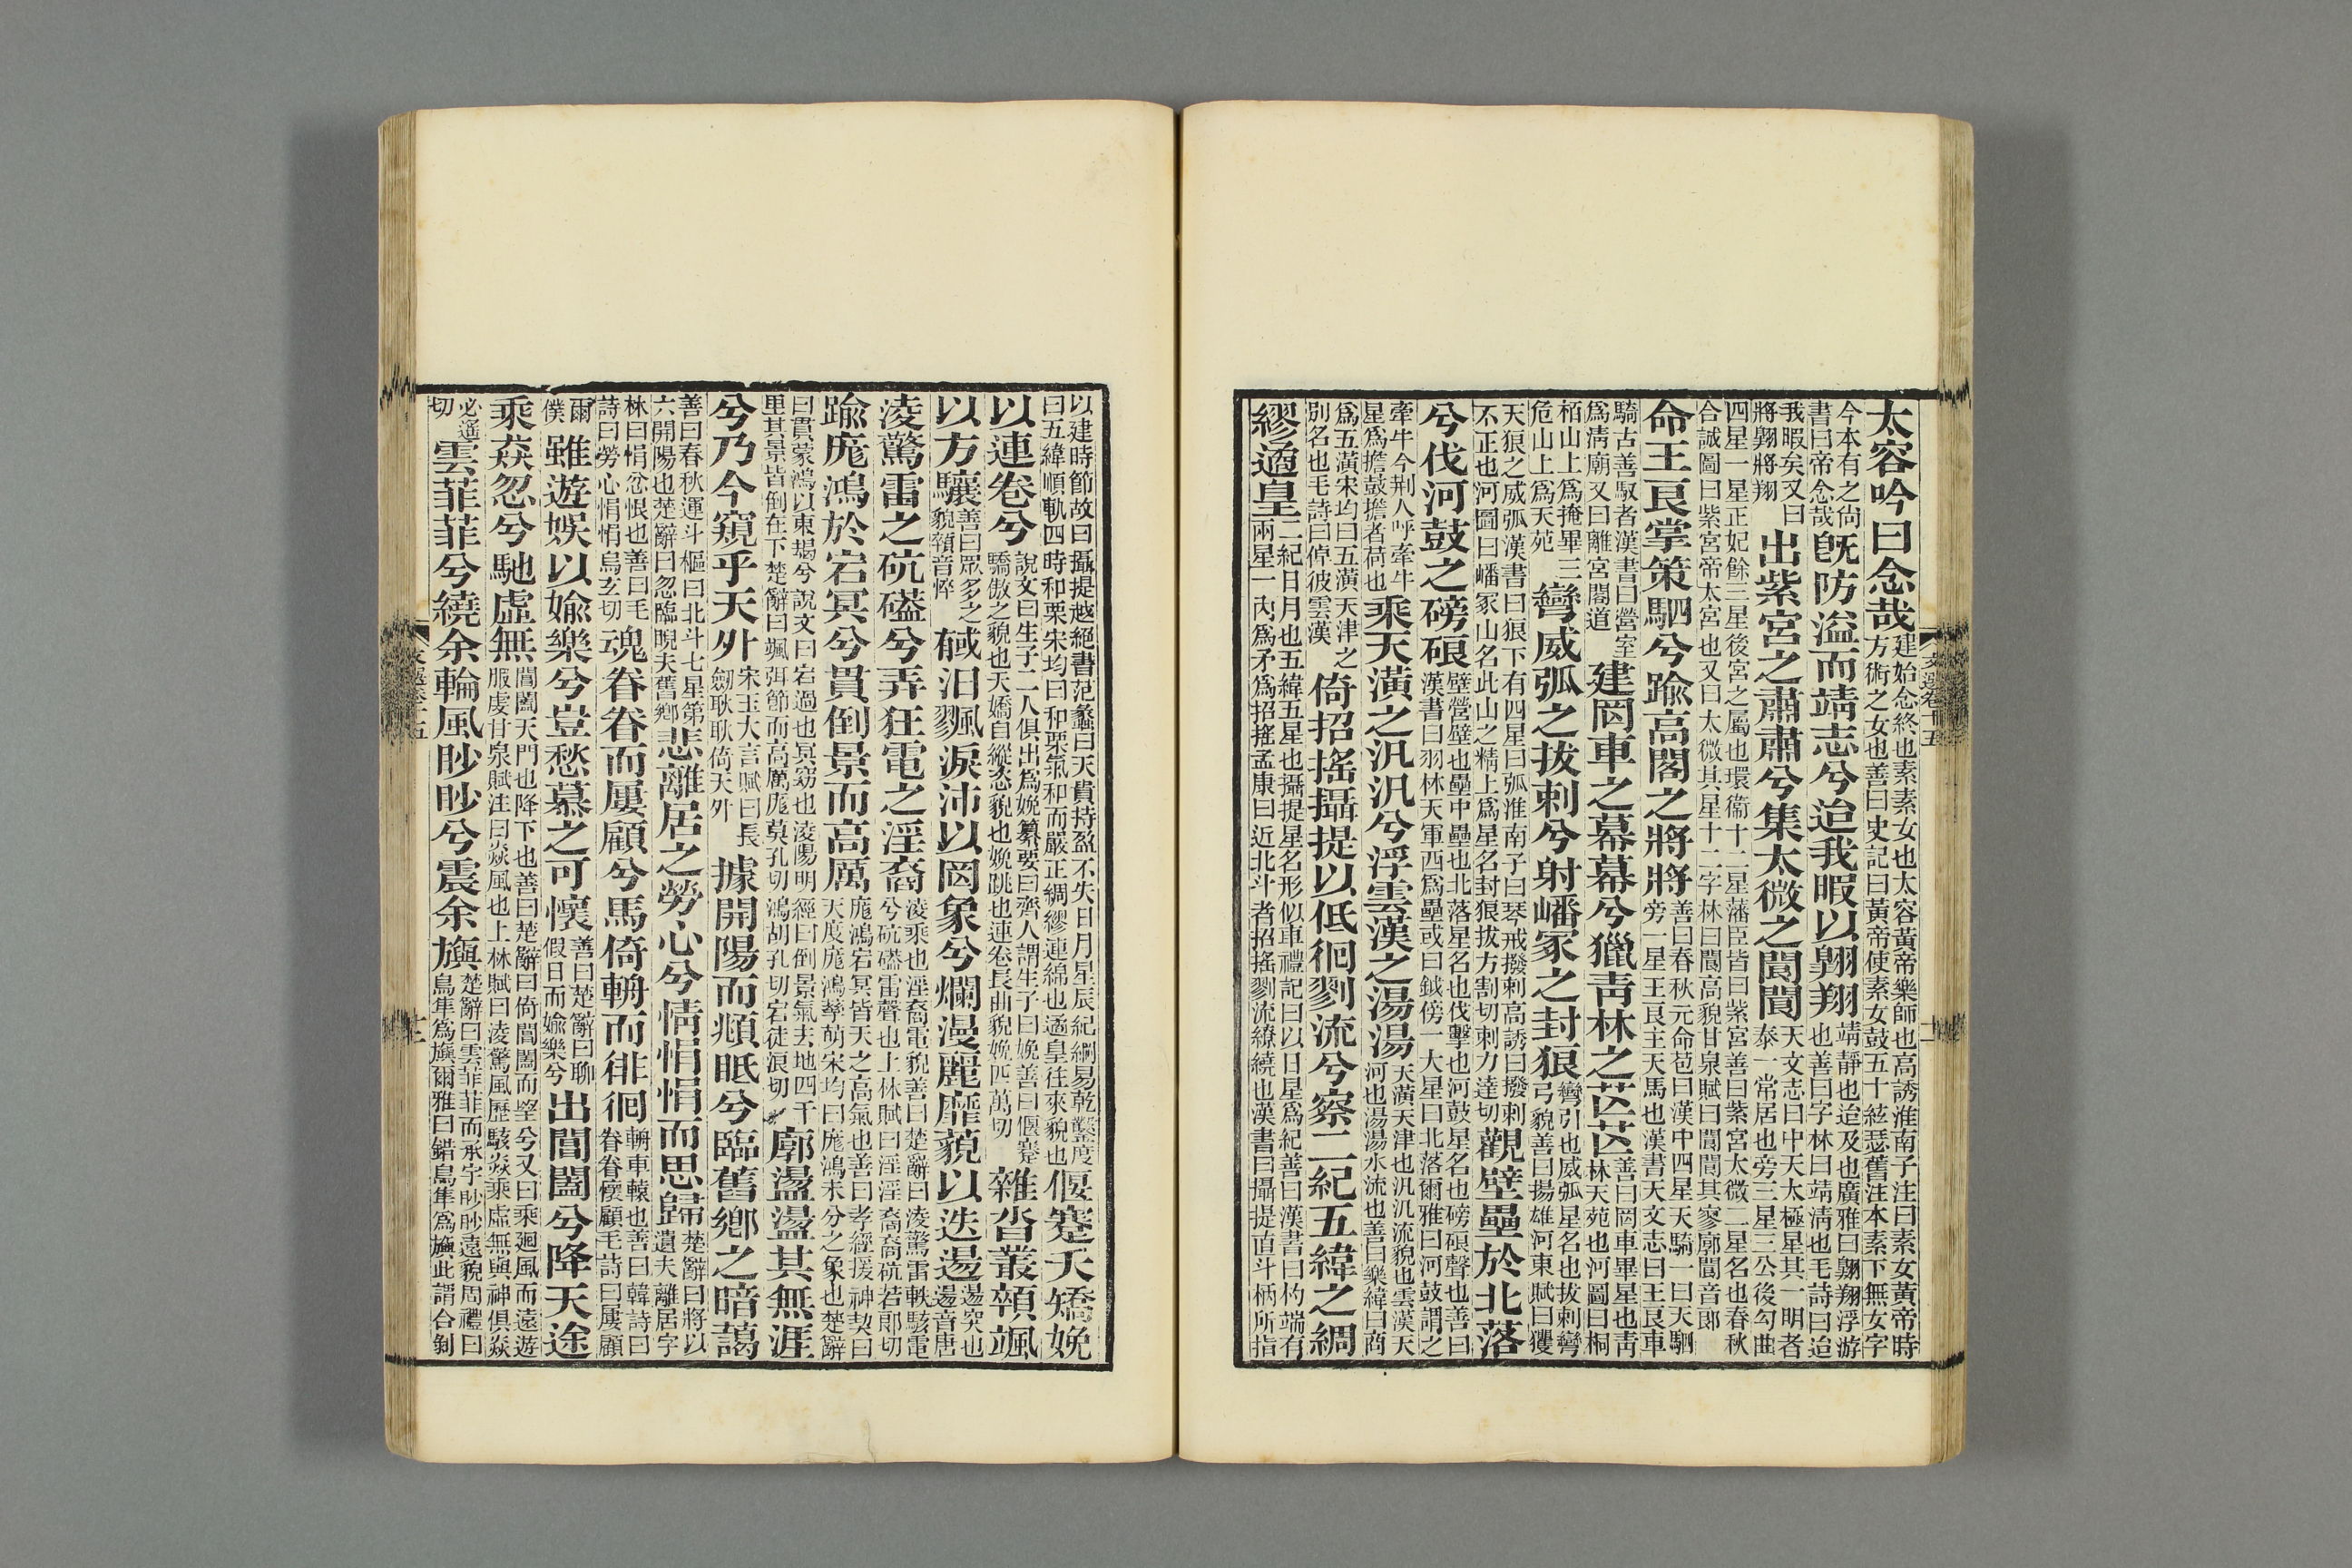 太容吟曰念哉建始念終也素素女也太容黃帝樂師也高誘淮南子注曰素女黃帝時方術之女也善曰史記曰黃帝使素女鼓五十絃瑟舊注本素下無女字
今本有之尙書曰帝念哉旣防溢而靖志兮迨我暇以翺翔靖靜也迨及也廣雅曰翺翔浮游也善曰字林曰靖淸也毛詩曰迨
我暇矣又曰將翺將翔出紫宮之肅肅兮集太微之閬閬天文志曰中天太極星其一明者泰一常居也旁三星三公後勾曲
四星一星正妃餘三星後宮之屬也環衞十二星藩臣皆曰紫宮善曰紫宮太微二星名也春秋合誠圖曰紫宮帝太宮也又曰太微其星十二字林曰閬高貌甘泉賦曰閬閬其寥廓閬音郎
命王良掌策駟兮踰高閣之將將善曰春秋元命苞曰漢中四星天騎一曰天駟旁一星王良主天馬也漢書天文志曰王良車
騎古善馭者漢書曰營室爲淸廟又曰離宮閣道建罔車之幕幕兮獵靑林之芒芒善曰罔車畢星也靑林天苑也河圖曰桐
栢山上爲掩畢三危山上爲天苑彎威弧之拔剌兮射嶓冢之封狼彎引也威弧星名也拔剌彎弓貌善曰揚雄河東賦曰彏
天狼之威弧漢書曰狼下有四星曰弧淮南子曰琴戒撥剌高誘曰撥剌不正也河圖曰嶓冢山名此山之精上爲星名封狼拔方割切剌力達切觀壁壘於北落
兮伐河鼓之磅硠壁營壁也壘中壘也北落星名也伐擊也河鼓星名也磅硠聲也善曰漢書曰羽林天軍西爲壘或曰鉞傍一大星曰北落爾雅曰河鼓謂之
牽牛今荆人呼牽牛星爲擔鼓擔者荷也乘天潢之汎汎兮浮雲漢之湯湯天潢天津也汎汎流貌也雲漢天河也湯湯水流也善曰樂緯曰商
爲五潢宋均曰五潢天津之別名也毛詩曰倬彼雲漢倚招搖攝提以低徊剹流兮察二紀五緯之綢
繆遹皇二紀日月也五緯五星也攝提星名形似車禮記曰以日星爲紀善曰漢書曰杓端有兩星一內爲矛爲招搖孟康曰近北斗者招搖剹流繚繞也漢書曰攝提直斗柄所指
以建時節故曰攝提越絕書范蠡曰天貴持盈不失日月星辰紀綱易乾鑿度曰五緯順軌四時和栗宋均曰和栗氣和而嚴正綢繆連綿也遹皇往來貌也偃蹇夭矯娩
以連卷兮說文曰生子二人俱出爲娩纂要曰齊人謂生子曰娩善曰偃蹇驕傲之貌也夭矯自縱恣貌也娩跳也連卷長曲貌娩匹萬切雜沓叢顇颯
以方驤善曰眾多之貌顇音悴戫汩飂淚沛以罔象兮爛漫麗靡藐以迭逿逿突也逿音唐
淩驚雷之硫礚兮弄狂電之淫裔淩乘也淫裔電貌善曰楚辭曰淩驚雷軼駭電兮硫礚雷聲也上林賦曰淫淫裔裔硫若郎切
踰庬澒於宕冥兮貫倒景而高厲庬鴻宕冥皆天之高氣也善曰孝經援神契曰天度庬鴻孳萌宋均曰庬鴻未分之象也楚辭
曰貫蒙鴻以東朅兮說文曰宕過也冥窈也淩陽明經曰倒景氣去地四千里其景皆倒在下楚辭曰颯弭節而高厲庬莫孔切鴻胡孔切宕徒浪切廓盪盪其無涯
兮乃今窺乎天外宋玉大言賦曰長劒耿耿倚天外據開陽而頫眡兮臨舊鄉之暗藹
善曰春秋運斗樞曰北斗七星第六開陽也楚辭曰忽臨睨夫舊鄉悲離居之勞心兮情悁悁而思歸楚辭曰將以遺夫離居字
林曰悁忿恨也善曰毛詩曰勞心悁悁烏玄切魂眷眷而屢顧兮馬倚輈而徘徊輈車轅也善曰韓詩曰眷眷懷顧毛詩曰屢顧
爾僕雖遊娛以媮樂兮豈愁慕之可懷善曰楚辭曰聊假日而媮樂兮出閶闔兮降天途
乘猋忽兮馳虛無閶闔天門也降下也善曰楚辭曰倚閶闔而望兮又曰乘迴風而遠遊服虔甘泉賦注曰猋風也上林賦曰淩驚風歷駭猋乘虛無與神俱猋
必遙切雲菲菲兮繞余輪風眇眇兮震余旟楚辭曰雲菲菲而承宇眇眇遠貌周禮曰鳥隼爲旟爾雅曰錯鳥隼爲旟此謂合剝